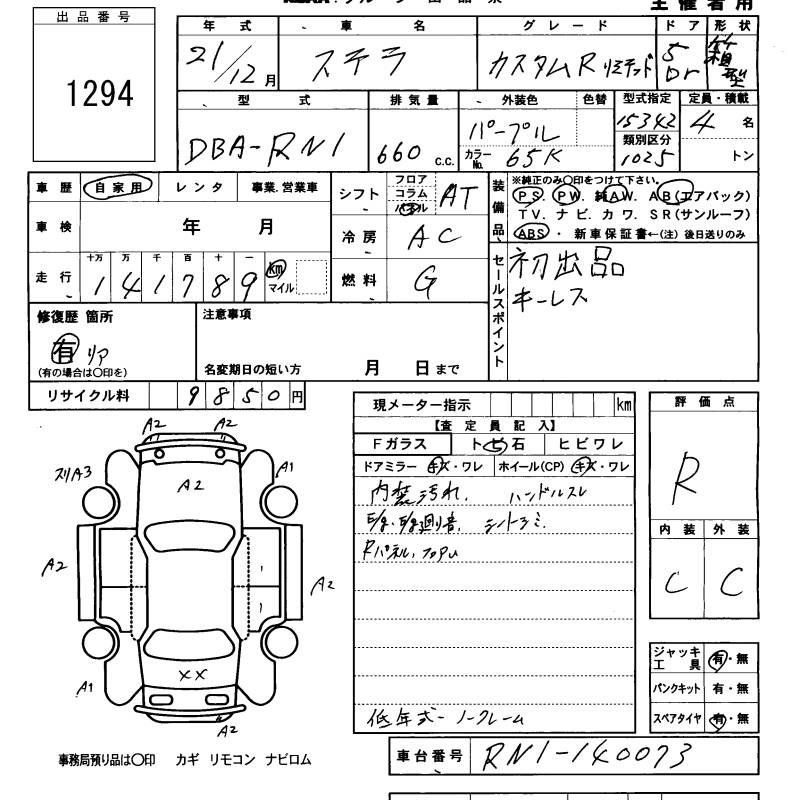 主催者用
出品番号
1294
年式 車名 グレード ドア 形状
21/12月 ステラ カスタムR リミテッド 5Dr 箱型
型式 排気量 外装色 色替 型式指定 定員・積載
DBA-RN1 660 c.c. パープル 15342 4名
カラーNo. 65K 類別区分 1025 トン
車歴 自家用 レンタ 事業.営業車
シフト フロア コラム パネル AT
車検 年 月
冷房 AC
走行 十万 万 千 百 十 一
141789 km マイル
燃料 G
装備品 ※純正のみ○印をつけて下さい。
PS. PW. 純AW. AB(エアバック)
TV. ナビ. カワ. SR(サンルーフ)
ABS ・ 新車保証書←(注)後日送りのみ
セールスポイント
初出品
キーレス
修復歴 箇所
有 リア
(有の場合は○印を)
注意事項
名変期日の短い方 月 日まで
リサイクル料 9850円
現メーター指示 km
【査定員記入】
Fガラス トビ石 ヒビワレ
ドアミラー キズ・ワレ ホイール(CP) キズ・ワレ
内装汚れ. ハンドルスレ
シートシミ.
Rパネル.
低年式-ノークレーム
評価点
R
内装 外装
C C
ジャッキ工具 有・無
パンクキット 有・無
スペアタイヤ 有・無
A2 A2
スリA3 A2 A1
A2 A2
XX
A1 A2
事務局預り品は○印 カギ リモコン ナビロム
車台番号 RN1-140073